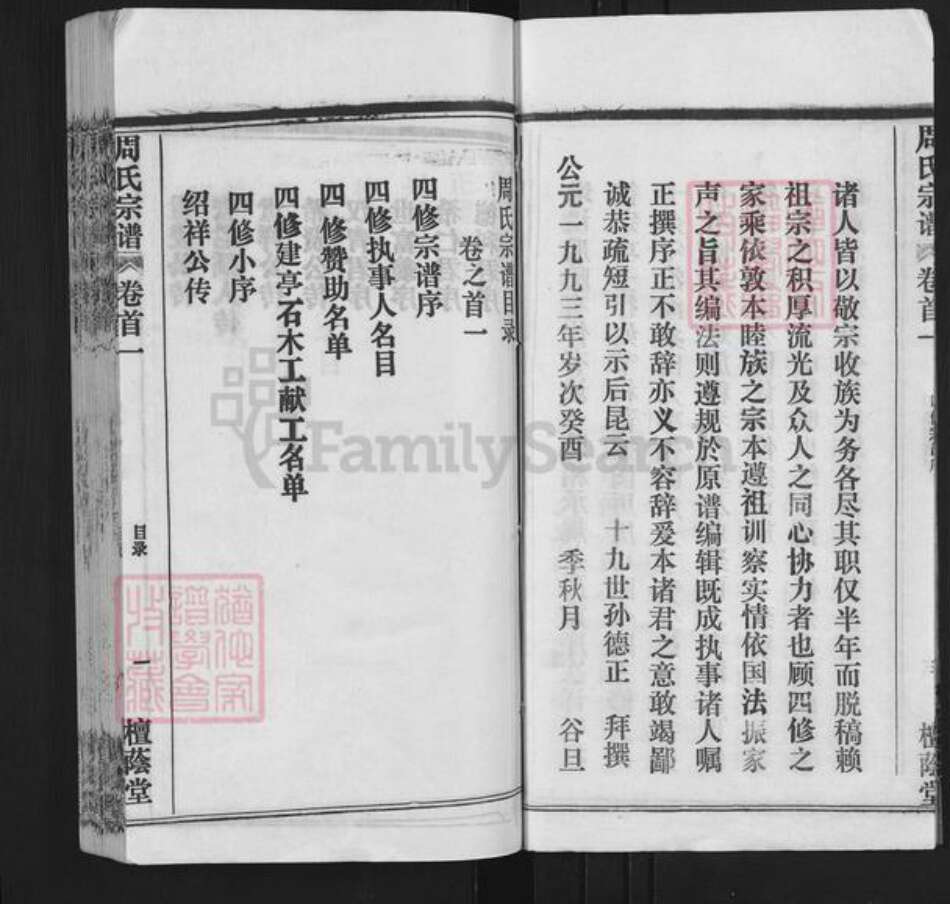 周氏宗谱 卷首一
檀蔭堂
诸人皆以敬宗收族为务各尽其职仅半年而脱稿赖
祖宗之积厚流光及众人之同心协力者也顾四修之
家乘依敦本睦族之宗本遵祖训察实情依国法振家
声之旨其编法则遵规於原谱编辑既成执事诸人嘱
正撰序正不敢辞亦义不容辞爰本诸君之意敢竭鄙
诚恭疏短引以示后昆云 十九世孙德正 拜撰
公元一九九三年岁次癸酉 季秋月 谷旦
周氏宗谱目录
卷之首一
四修宗谱序
四修执事人名目
四修赞助名单
四修建亭石木工献工名单
四修小序
绍祥公传
周氏宗谱 卷首一
目录
一
檀蔭堂
FamilySearch